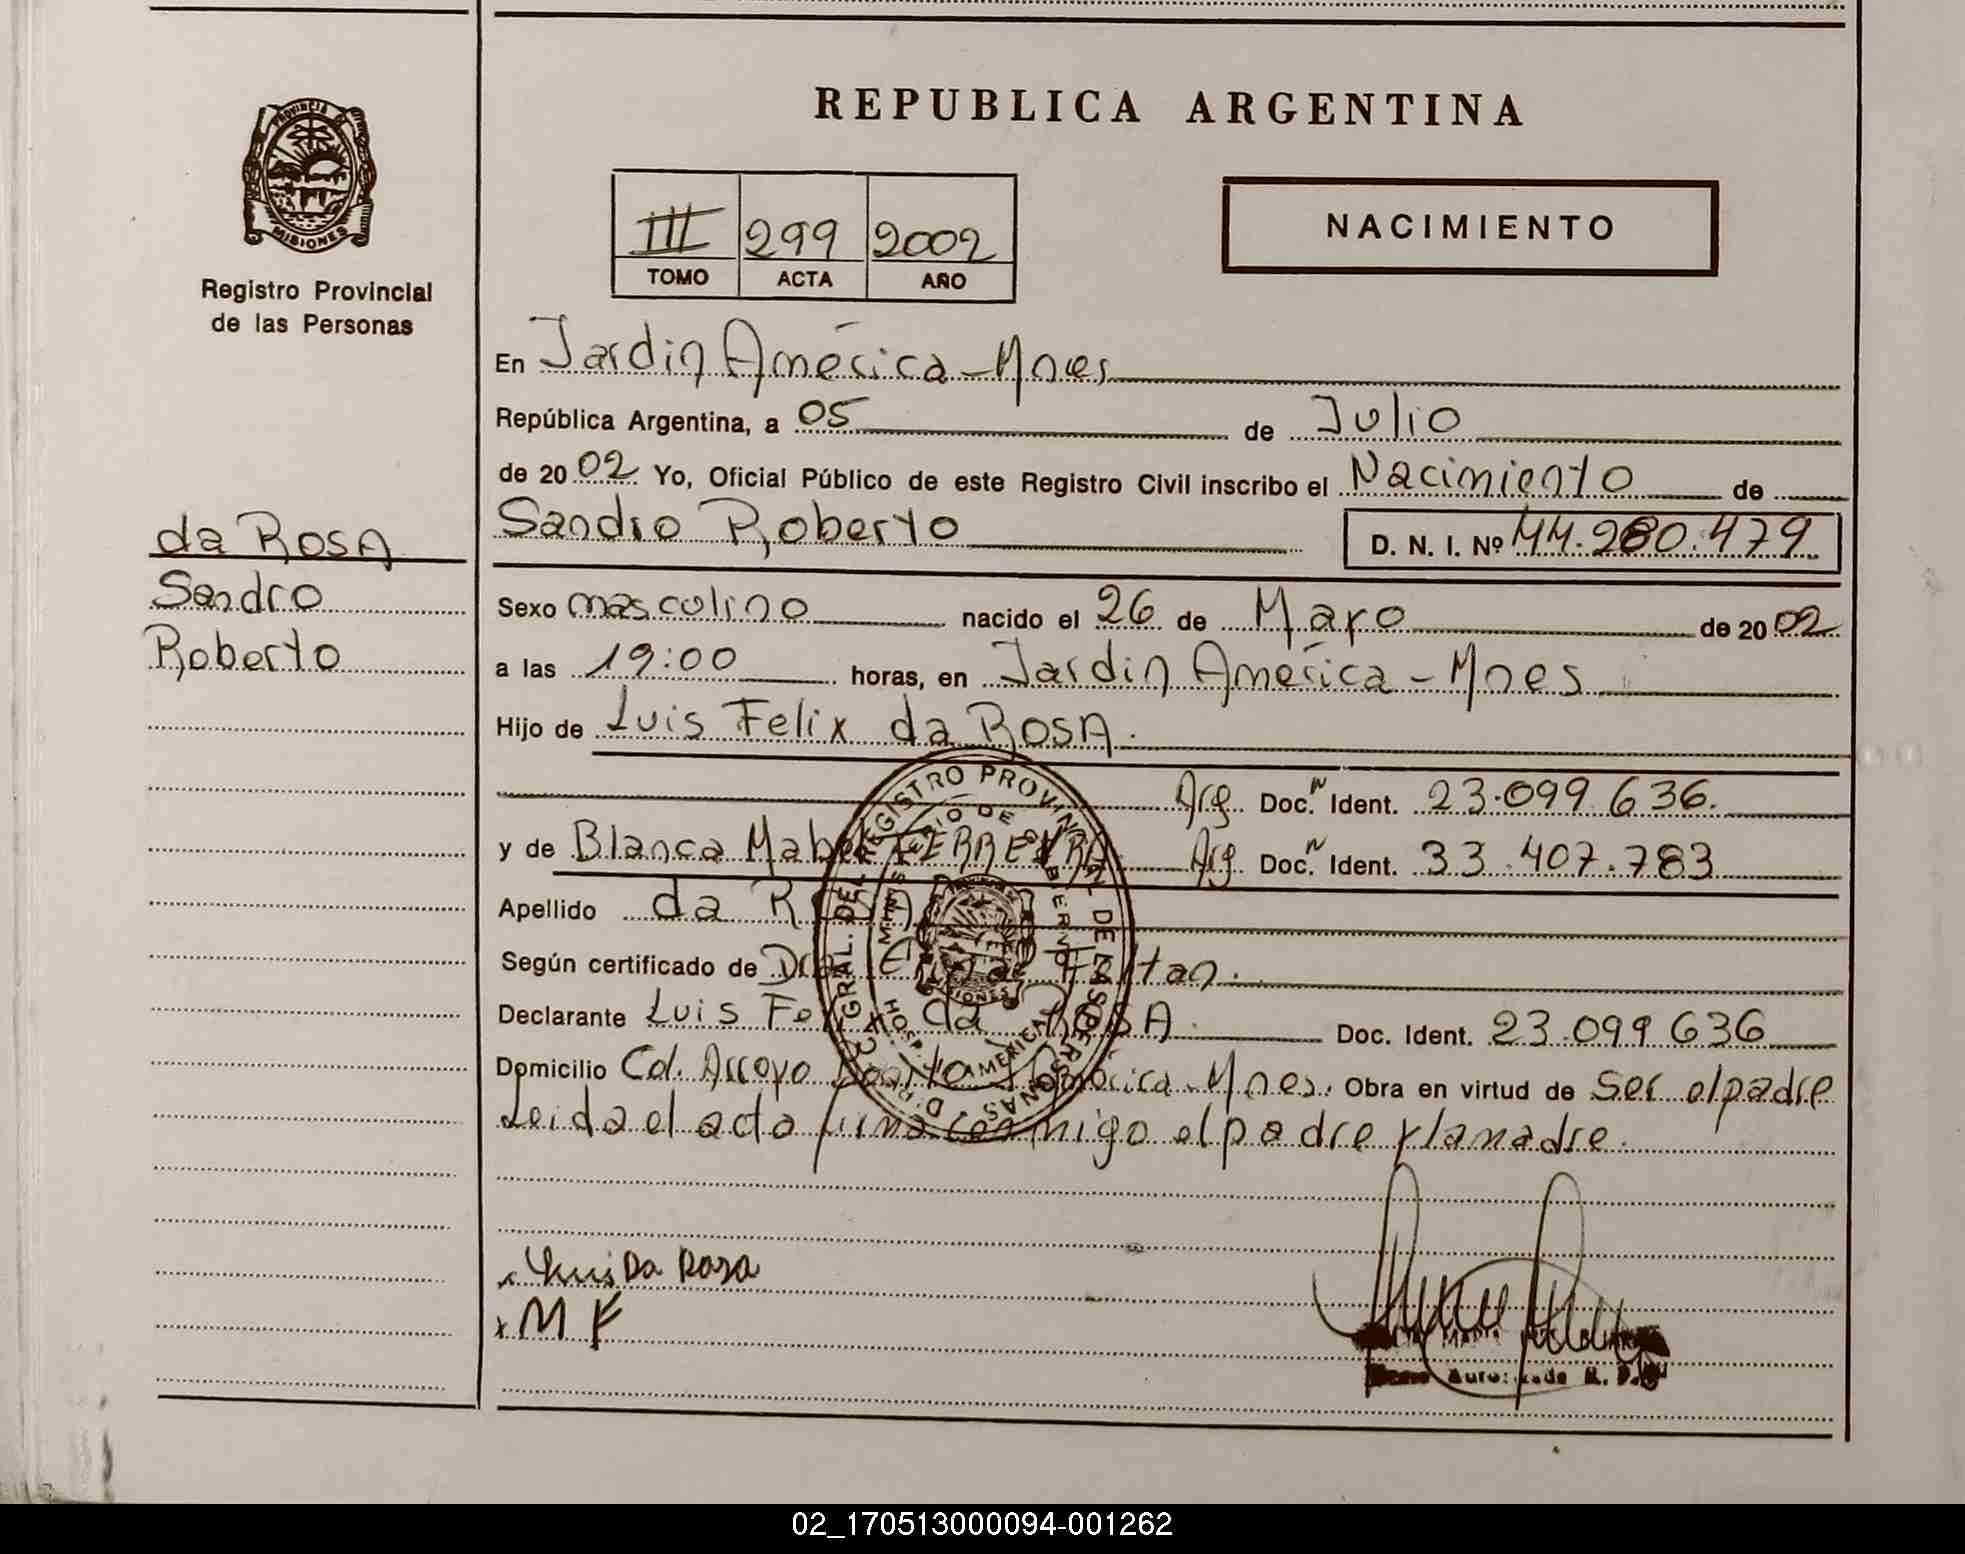 REPUBLICA ARGENTINA
PROVINCIA DE MISIONES
Registro Provincial
de las Personas
III 299 2002
TOMO ACTA AÑO
NACIMIENTO
En Jardin América - Mnes
República Argentina, a 05 de Julio
de 2002 Yo, Oficial Público de este Registro Civil inscribo el Nacimiento de
Sandro Roberto D. N. I. Nº 44.280.479
da ROSA
Sandro
Roberto
Sexo masculino nacido el 26 de Mayo de 2002
a las 19:00 horas, en Jardin América - Mnes
Hijo de Luis Felix da ROSA.
Arg. Doc. Ident. 23.099.636.
y de Blanca Mabel FERREYRA Arg. Doc. Ident. 33.407.783
Apellido da ROSA
Según certificado de
Declarante Luis Felix da ROSA. Doc. Ident. 23.099.636
Domicilio Col. Arroyo América - Mnes. Obra en virtud de ser el padre
Leida el acta firma conmigo el padre y la madre.
DIRECC. GRAL. DEL REGISTRO PROVINCIAL DE LAS PERSONAS
MINISTERIO DE GOBIERNO
HOSP. AMERICA
MISIONES
x Luis Da Rosa
x M F
02_170513000094-001262